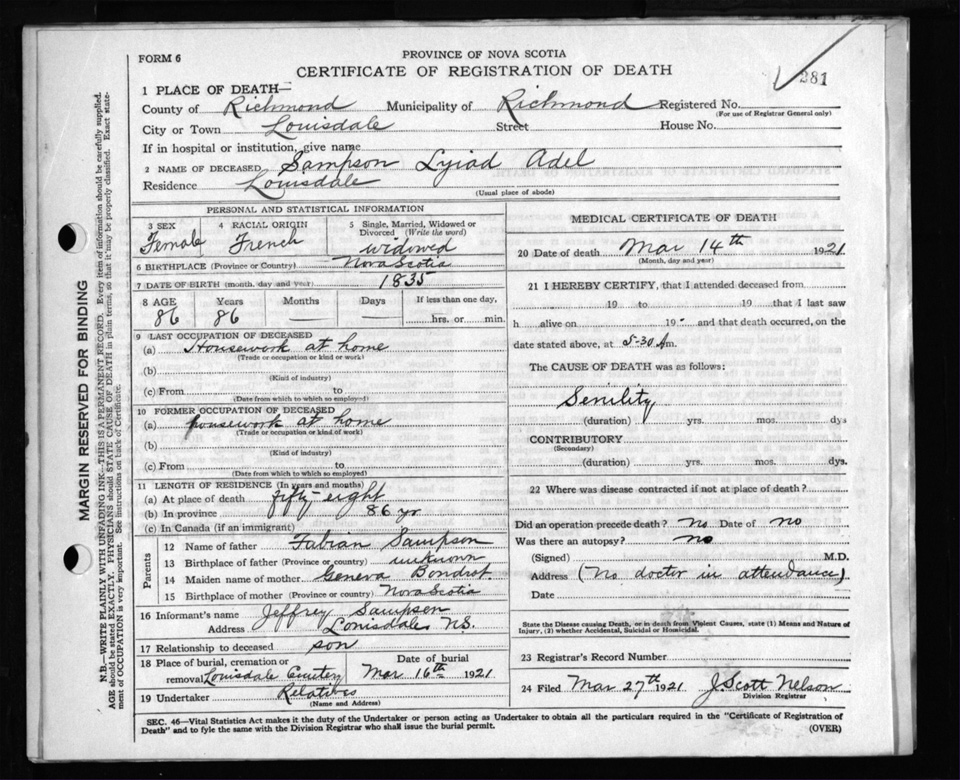 FORM 6
PROVINCE OF NOVA SCOTIA
CERTIFICATE OF REGISTRATION OF DEATH
281
1 PLACE OF DEATH—
County of Richmond Municipality of Richmond Registered No.
(For use of Registrar General only)
City or Town Louisdale Street House No.
If in hospital or institution, give name
2 NAME OF DECEASED Sampson Lyiad Adel
Residence Louisdale
(Usual place of abode)
PERSONAL AND STATISTICAL INFORMATION
3 SEX Female
4 RACIAL ORIGIN French
5 Single, Married, Widowed or Divorced (Write the word) widowed
6 BIRTHPLACE (Province or Country) Nova Scotia
7 DATE OF BIRTH (month, day and year) 1835
8 AGE Years Months Days If less than one day,
86 86 — — hrs. or min.
9 LAST OCCUPATION OF DECEASED
(a) Housework at home
(Trade or occupation or kind of work)
(b)
(Kind of industry)
(c) From to
(Date from which to which so employed)
10 FORMER OCCUPATION OF DECEASED
(a) housework at home
(Trade or occupation or kind of work)
(b)
(Kind of industry)
(c) From to
(Date from which to which so employed)
11 LENGTH OF RESIDENCE (In years and months)
(a) At place of death fifty-eight
(b) In province 86 yr
(c) In Canada (if an immigrant)
Parents
12 Name of father Fabian Sampson
13 Birthplace of father (Province or country) unknown
14 Maiden name of mother Geneva Bondrot
15 Birthplace of mother (Province or country) Nova Scotia
16 Informant's name Jeffrey Sampson
Address Lonisdale N.S.
17 Relationship to deceased son
18 Place of burial, cremation or removal Louisdale
Date of burial Mar 16th 1921
19 Undertaker Relatives
(Name and Address)
MEDICAL CERTIFICATE OF DEATH
20 Date of death Mar 14th 1921
(Month, day and year)
21 I HEREBY CERTIFY, that I attended deceased from
19 to 19 that I last saw
h alive on 19 and that death occurred, on the
date stated above, at 5-30 A m.
The CAUSE OF DEATH was as follows:
Senility
(duration) yrs. mos. dys
CONTRIBUTORY
(Secondary)
(duration) yrs. mos. dys.
22 Where was disease contracted if not at place of death?
Did an operation precede death? No Date of no
Was there an autopsy? no
(Signed) M.D.
Address (No doctor in attendance)
Date
State the Disease causing Death, or in death from Violent Causes, state (1) Means and Nature of
Injury, (2) whether Accidental, Suicidal or Homicidal.
23 Registrar's Record Number
24 Filed Mar 27th 1921 J. Scott Nelson
Division Registrar
SEC. 46—Vital Statistics Act makes it the duty of the Undertaker or person acting as Undertaker to obtain all the particulars required in the "Certificate of Registration of
Death" and to fyle the same with the Division Registrar who shall issue the burial permit.
(OVER)
MARGIN RESERVED FOR BINDING
N.B.—WRITE PLAINLY WITH UNFADING INK—THIS IS A PERMANENT RECORD. Every item of information should be carefully supplied.
AGE should be stated EXACTLY. PHYSICIANS should STATE CAUSE OF DEATH in plain terms, so that it may be properly classified. Exact state-
ment of OCCUPATION is very important. See instructions on back of Certificate.